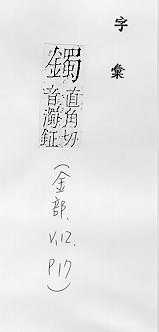 字彙
鐲
直角切
音濁鉦
(金部.
V.12.
P.17)